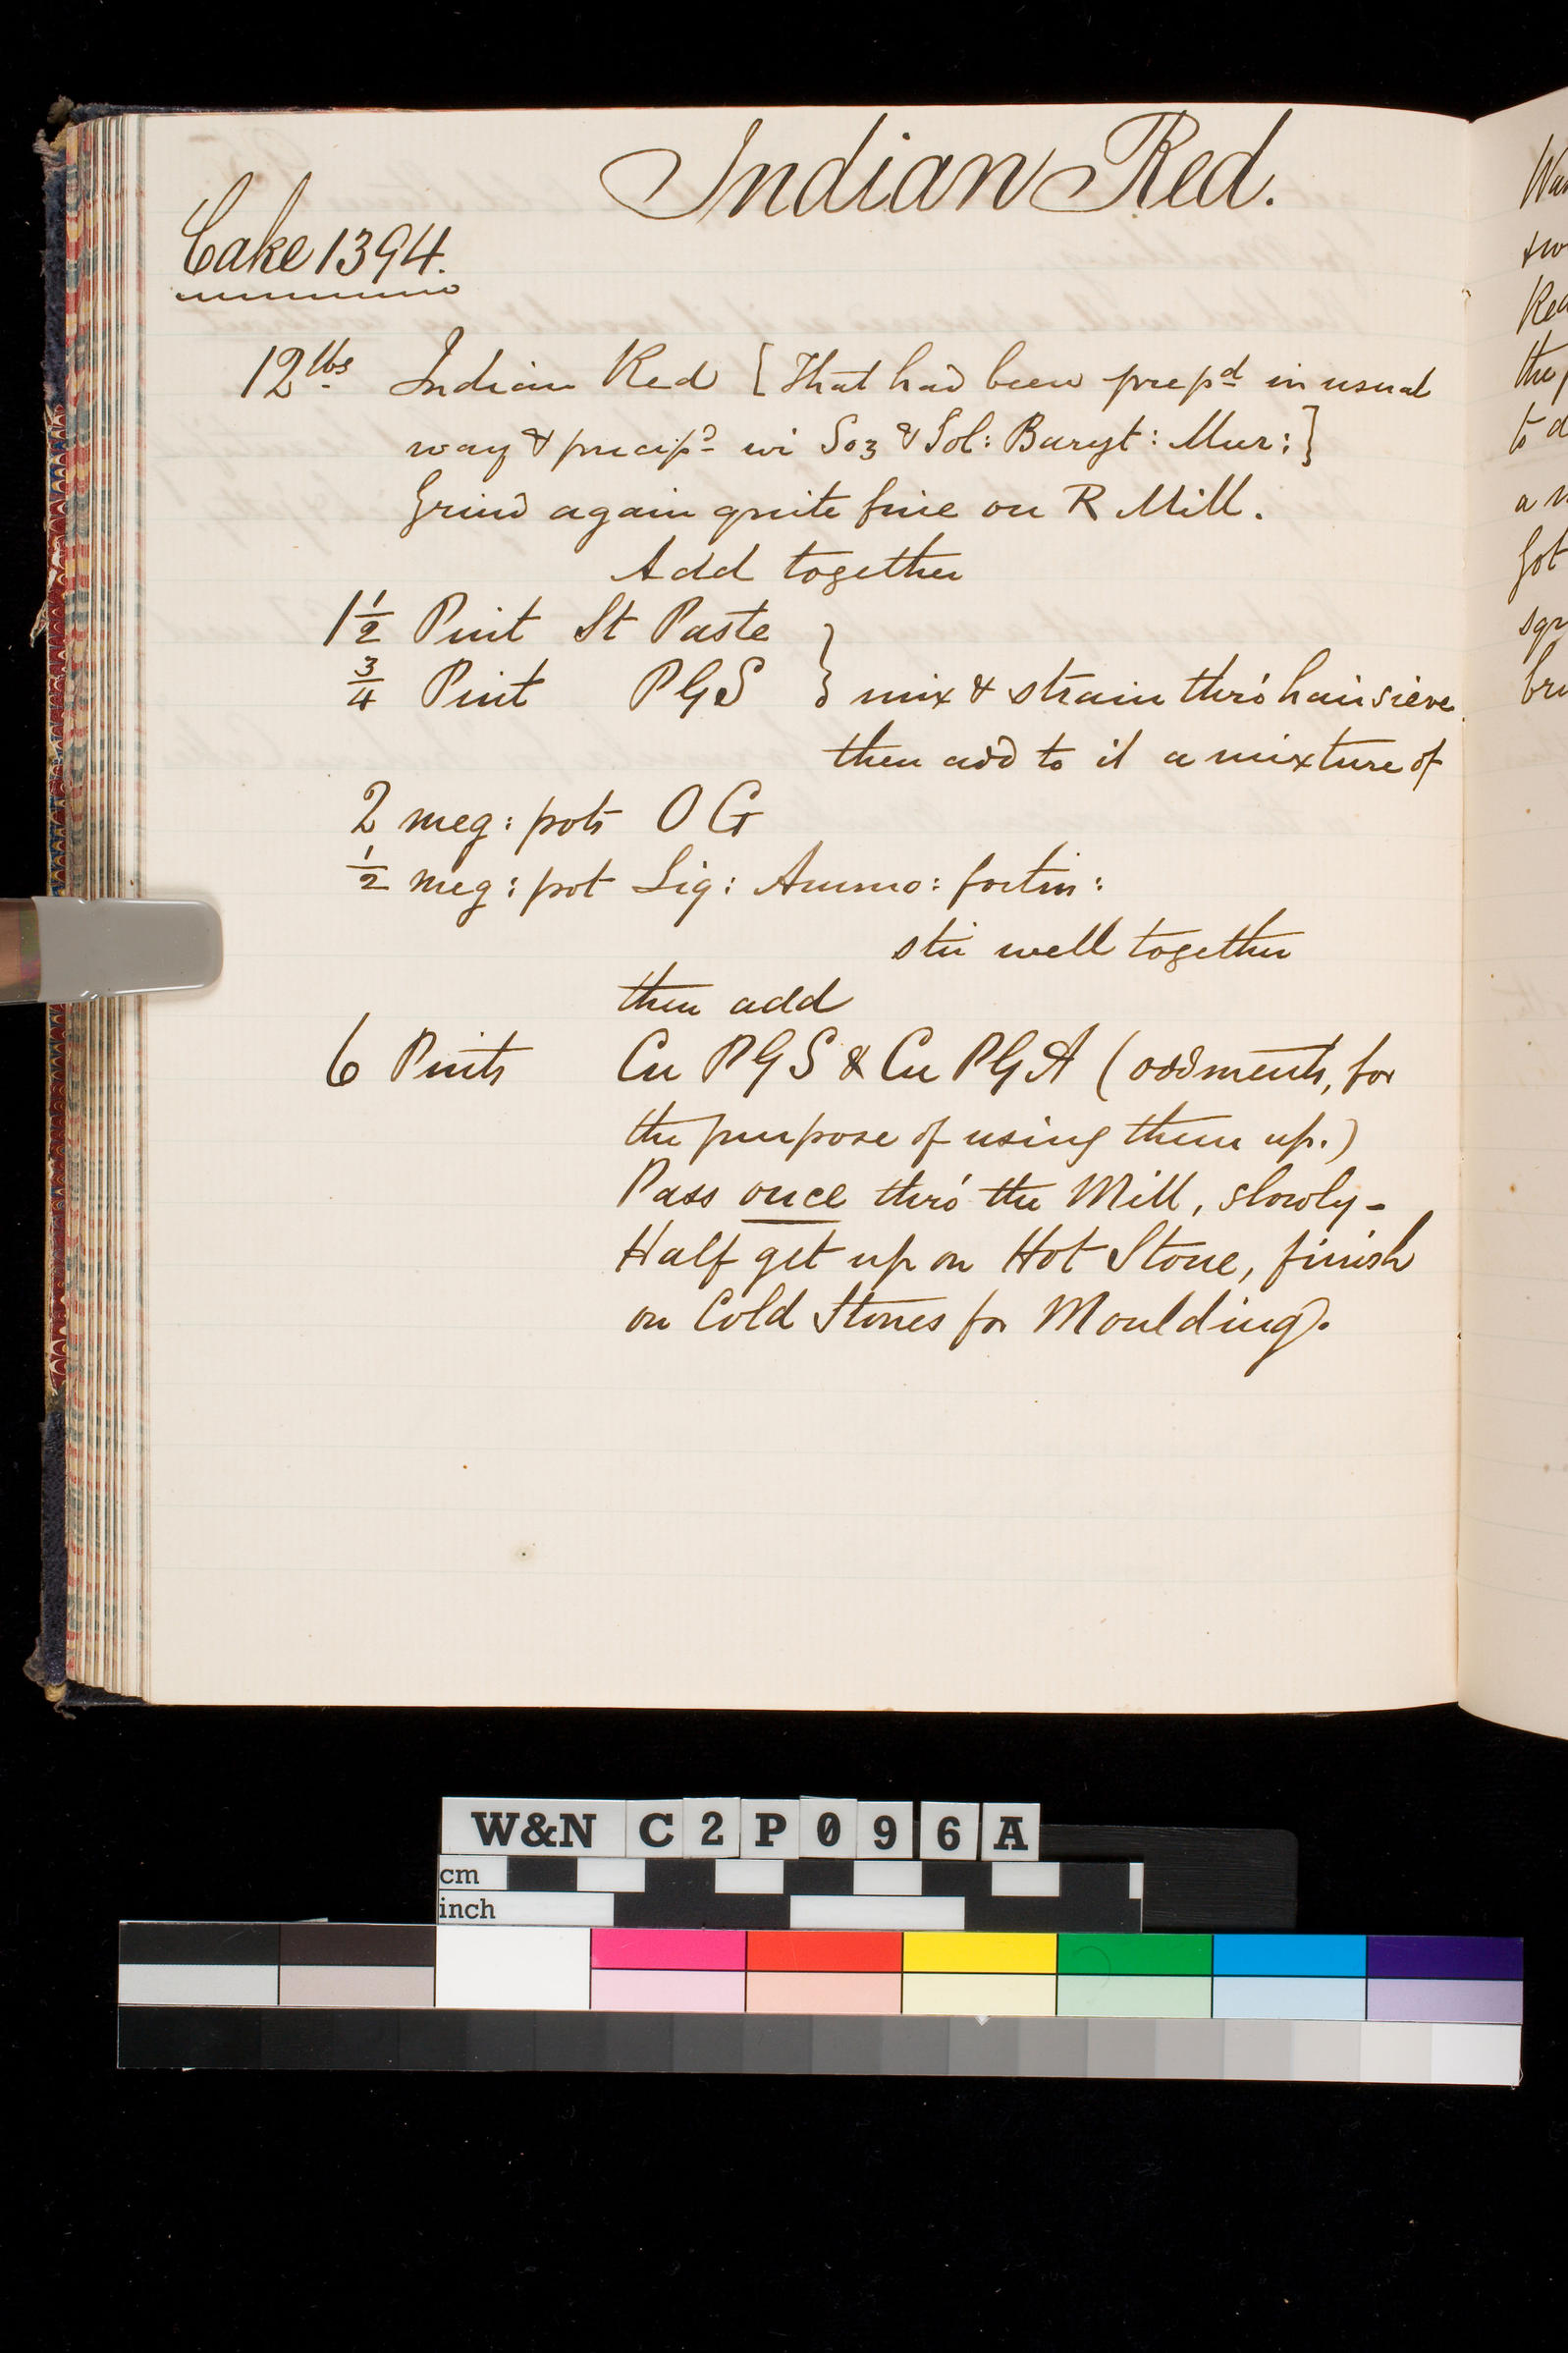 Indian Red.
Cake 1394.
12 lbs Indian Red [That had been prepd in usual
way & precipd wi So3 & Sol: Baryt: Mur:}
Grind again quite fine on R Mill.
Add together
1 1/2 Pint St Paste
3/4 Pint PGS } mix & strain thro' hair sieve
then add to it a mixture of
2 meg: pots O G
1/2 meg: pot Liq: Ammo: fortis:
stir well together
then add
6 Pints Cu PGS & Cu PGA (oddments, for
the purpose of using them up.)
Pass once thro' the Mill, slowly -
Half get up on Hot Stone, finish
on Cold Stones for Moulding.
Red
the
to
a
Got
W&N C2P096A
cm
inch